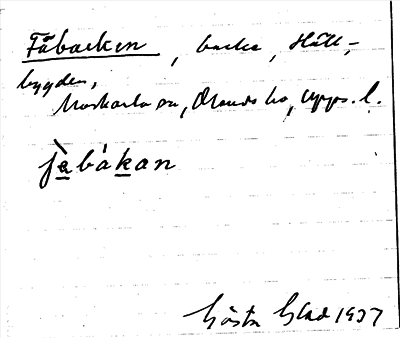 Fäbacken, backe, Häll-
bygden,
Morkarla sn, Olands hd, Upps. l.
fæ̀bákan
Gösta Glad 1937